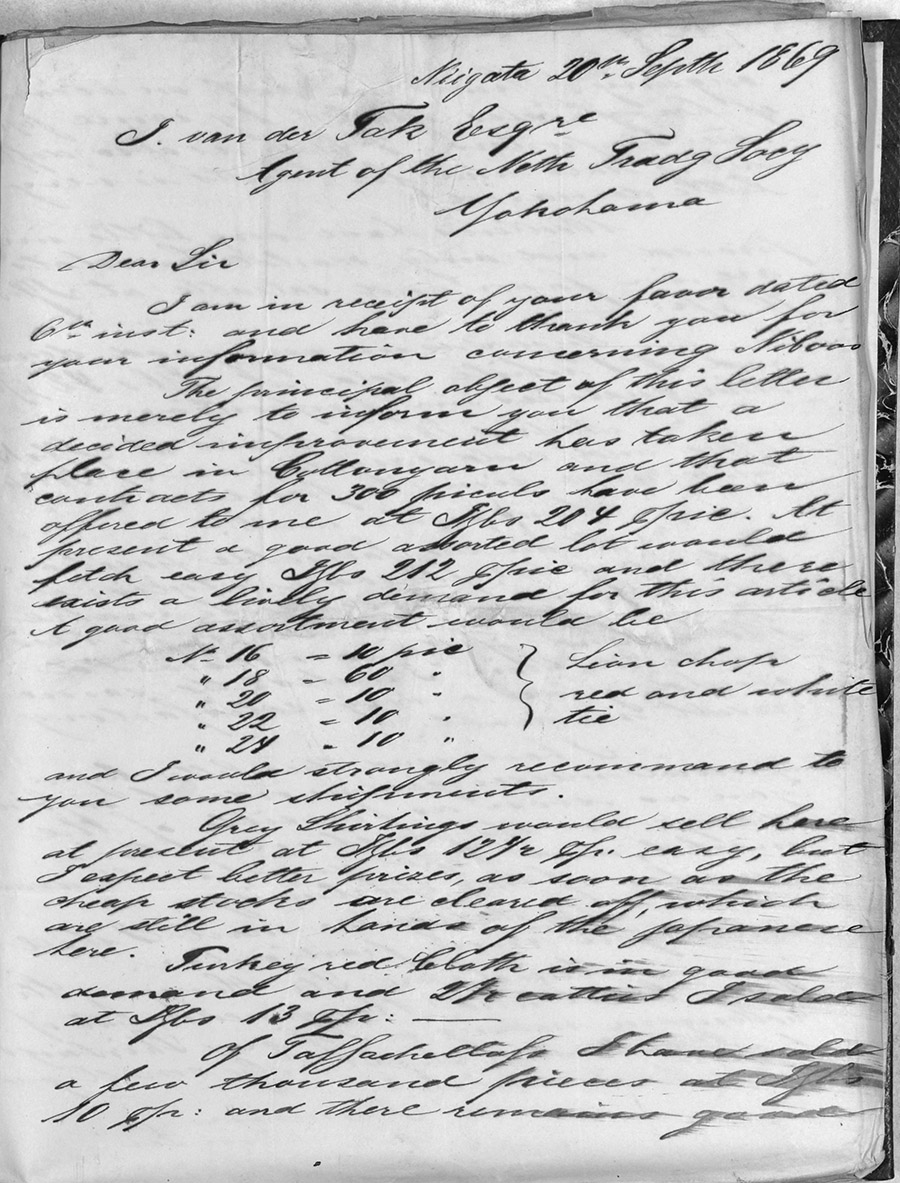 Niigata 20th Septh 1869
J. van der Tak Esqre
Agent of the Neth Tradg Socy
Yokohama
Dear Sir
I am in receipt of your favor dated
6th inst: and have to thank you for
your information concerning Niboos
The principal object of this letter
is merely to inform you that a
decided improvement has taken
place in Cottonyarn and that
contracts for 300 piculs have been
offered to me at 204 pic. At
present a good assorted lot would
fetch easy 212 pic and there
exists a lively demand for this article
A good assortment would be
No 16 = 10 pic
" 18 = 60 "
" 20 = 10 "
" 22 = 10 "
" 24 = 10 "
Lion chop
red and white
tie
and I would strongly recommend to
you some shipments.
Grey Shirtings would sell here
at present at 12 1/2 pr. easy, but
I expect better prizes, as soon as the
cheap stocks are cleared off, which
are still in hands of the Japanese
here.
Turkey red Cloth is in good
demand and 2 1/2 catties I sold
at 13 pr: —
Of I have sold
a few thousand pieces at
10 pr: and there remains good